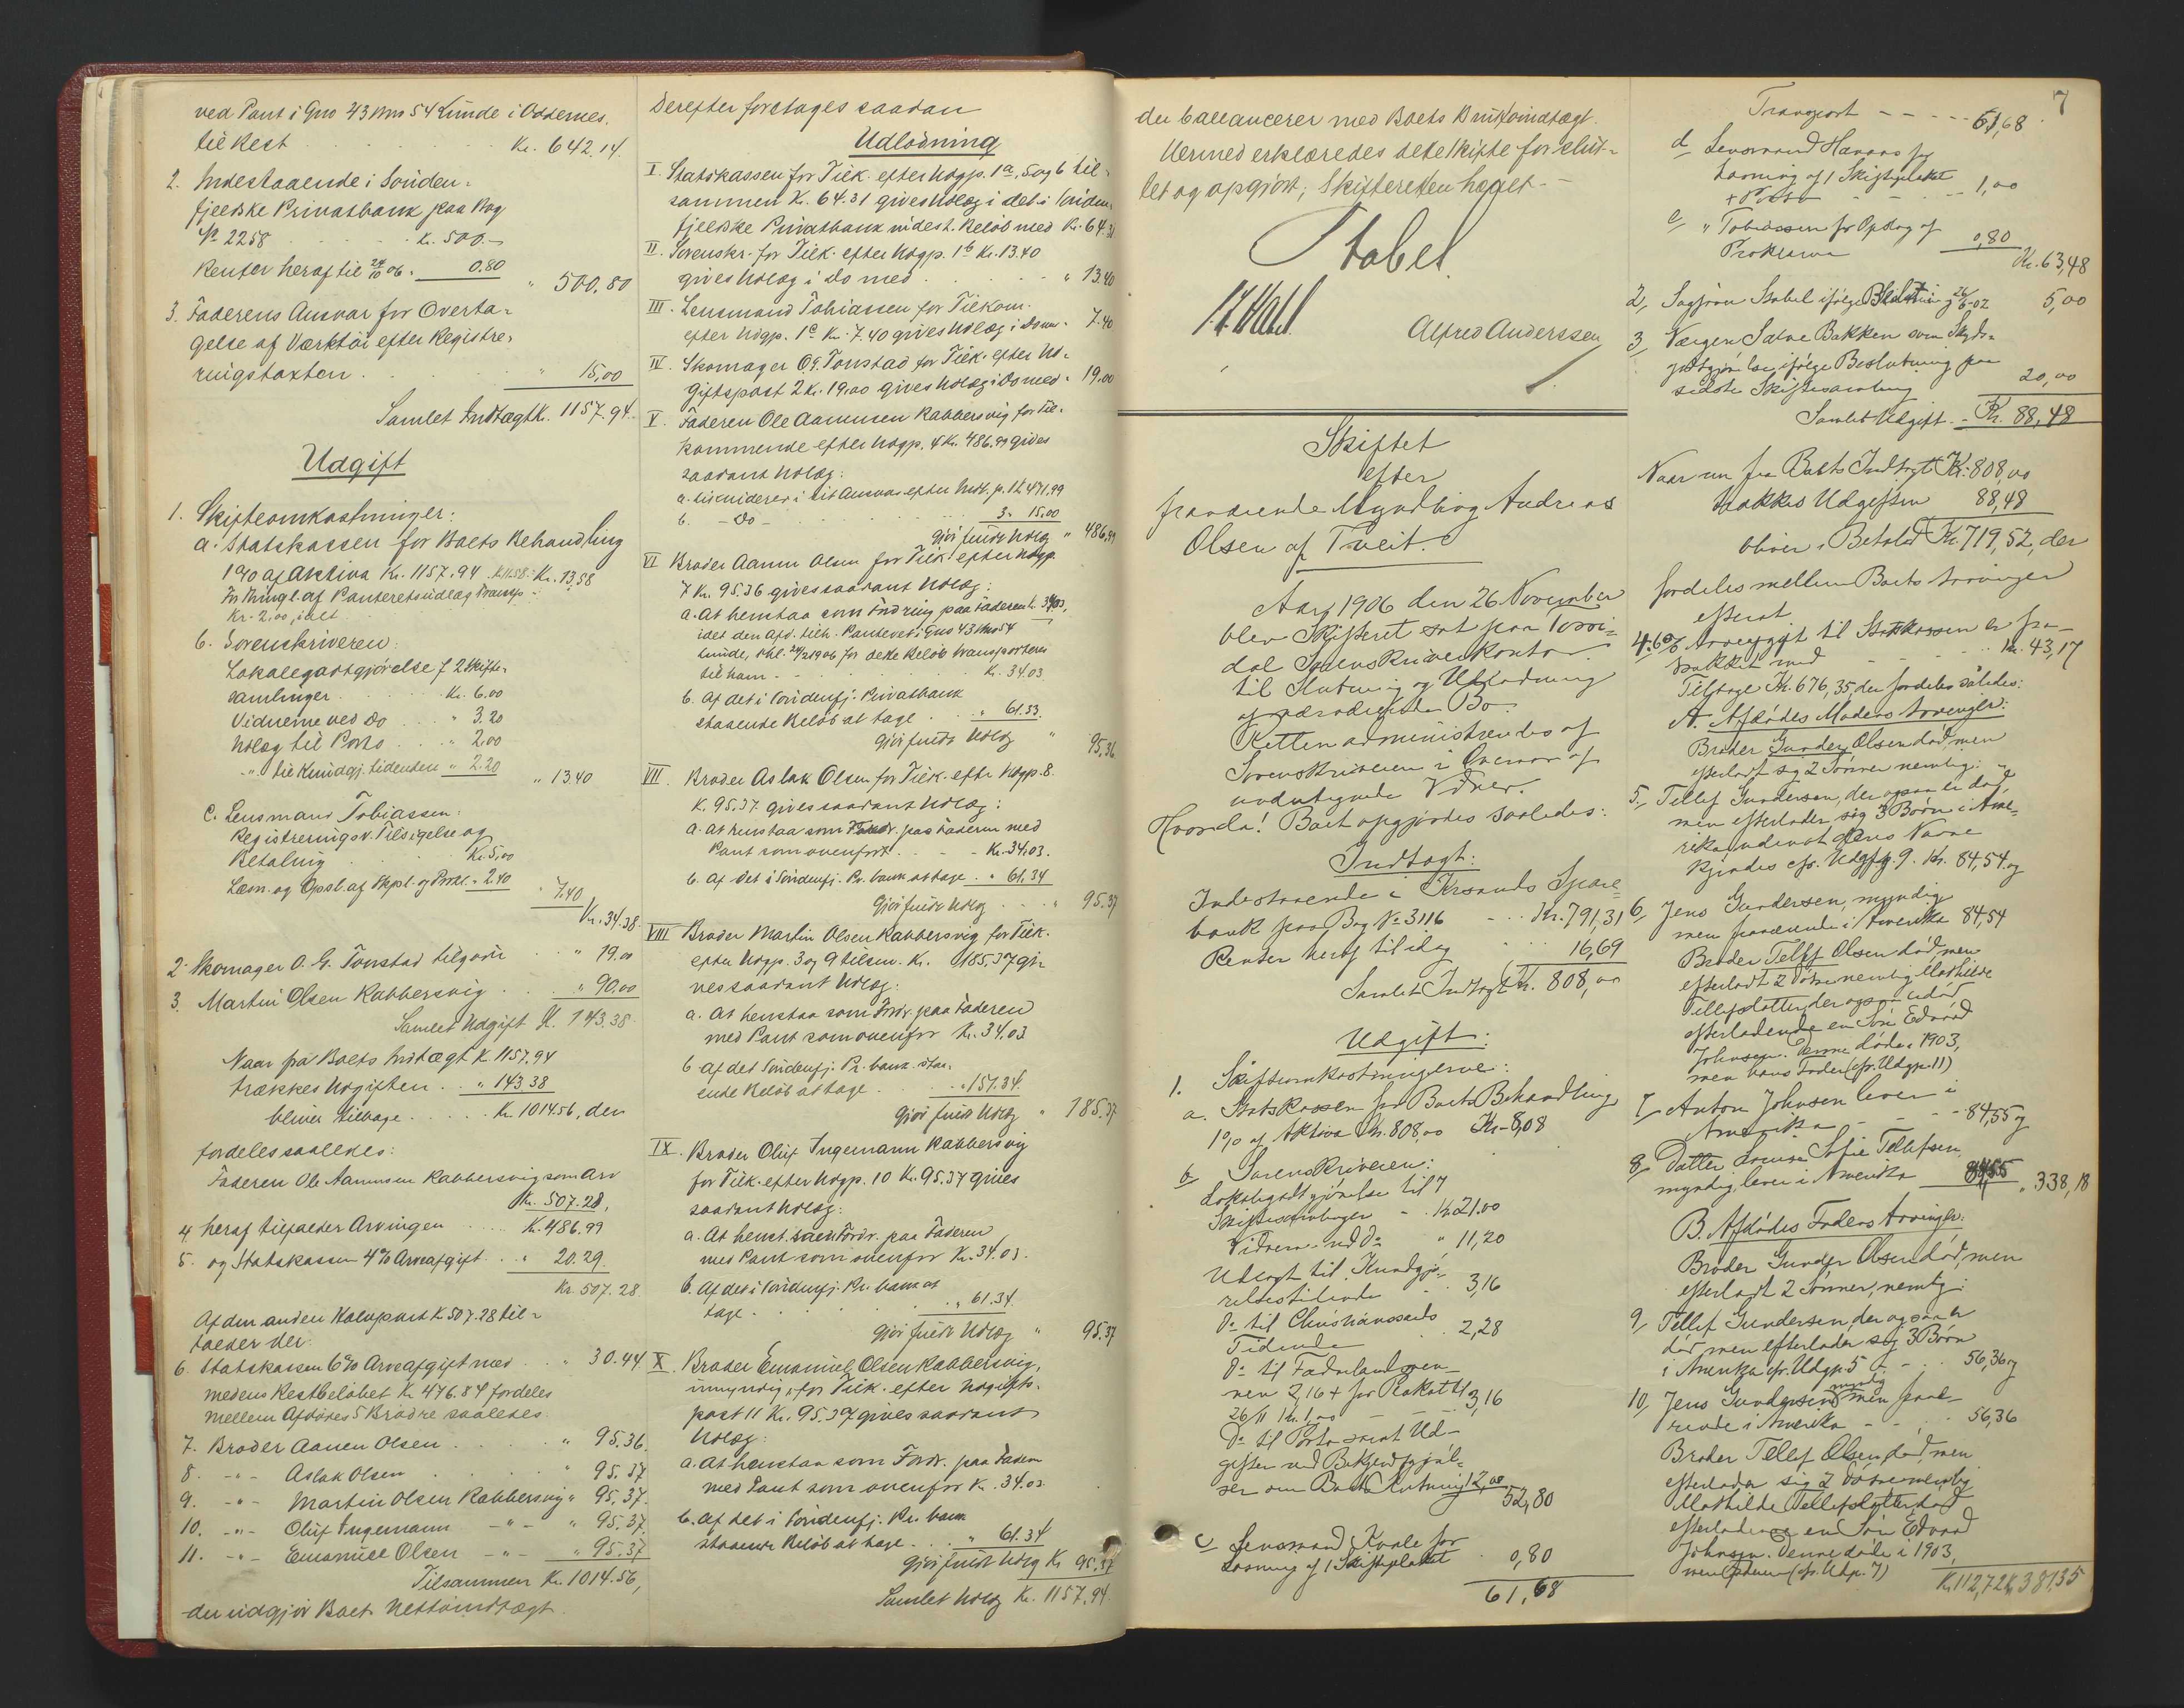 ved Pant i Gno 43 Bno 54 Lunde i Oddernes.
til Rest Kr. 642.14.
2. Indestaaende i Sönden-
fjeldske Privatbank paa Bog
No 2258 Kr. 500.-
Renter heraf til 24/10 06. 0.80
" 500.80
3. Faderens Ansvar for Overta-
gelse af Værktöi efter Registre-
ringstaxten. " 15,00
Samlet Indtægt Kr. 1157.94.
Udgift
1. Skifteomkostninger:
a. Statskassen for Boets Behandling
1% af Aktiva Kr. 1157.94 Kr. 11.58. Kr. 13,58
Kr. 2.00, ialt
b. Sorenskriveren:
Lokalegodtgjörelse f. 2 Skifte-
samlinger Kr. 6.00
Vidnerne ved Do " 3.20
Udlæg til Porto " 2.00
" til Kundgj. tidenden " 2.20
" 13.40
c. Lensmand Tobiassen:
Registreringsv. Tilsigelse og
Betaling Kr. 5,00
Læsn. og Opsl. af Skpl. og Prokl. " 2.40
" 7.40
Kr. 34.38.
2. Skomager O. G. Tonstad tilgode " 19.00
3. Martin Olsen Kabbersvig " 90.00
Samlet Udgift K. 143.38
Naar fra Boets Indtægt K. 1157.94
trækkes Udgiften " 143 38
bliver tilbage Kr. 1014.56, der
fordeles saaledes:
Faderen Ole Aanensen Kabbersvig som Arv
Kr. 507.28,
4. heraf tilfalder Arvingen K. 486.99
5. og Statskassen 4% Arveafgift " 20.29.
Kr. 507.28
Af den anden Halvpart K. 507.28 til-
falder der:
6. Statskassen 6% Arveafgift med " 30.44.
medens Restbelöbet Kr. 476.84 fordeles
mellem Afdödes 5 Brödre saaledes:
7. Broder Aanen Olsen " 95.36.
8. -"- Aslak Olsen " 95.37
9. -"- Martin Olsen Kabbersvig " 95.37.
10. -"- Oluf Ingemann -"- " 95.37.
11. -"- Emanuel Olsen -"- " 95.37
Tilsammen Kr. 1014.56,
der udgjör Boets Nettoindtægt.
Derefter foretages saadan
Udlodning
I. Statskassen for Tilk. efter Udgp. 1a, 5 og 6 til-
sammen K. 64.31 gives Udlæg i det i Sönden-
fjeldske Privatbank indest. Belöb med Kr. 64.31
II. Sorenskr. for Tilk. efter Udgp. 1b Kr. 13.40
gives Udlæg i Do med " 13.40
III. Lensmand Tobiassen for Tilkom.
efter Udgp. 1c Kr. 7.40 gives Udlæg i Do m. " 7.40
IV. Skomager O. G. Tonstad for Tilk. efter Ud-
giftspost 2 K. 19.00 gives Udlæg i Do med " 19.00
V. Faderen Ole Aanensen Kabbersvig for Til-
kommende efter Udgp. 4 Kr. 486.99 gives
saadant Udlæg:
a. likviderer i sit Ansvar efter Indt. p. 1 K. 471,99
b. - Do - 3. 15.00
gjör fuldt Udlæg " 486.99
VI Broder Aanen Olsen for Tilk. efter Udgp.
7 Kr. 95.36 gives saadant Udlæg:
a. At henstaa som Fordring paa Faderen K. 34.03,
Lunde, for dette Belöb transporteres
til ham K. 34.03
b. Af det i Söndenfj. Privatbank
staaende Belöb at tage " 61.33.
gjör fuldt Udlæg " 95.36
VII. Broder Aslak Olsen for Tilk. efter Udgp. 8.
K. 95.37 gives saadant Udlæg:
a. At henstaa som Fordr. paa Faderen med
Pant som ovenfort Kr. 34.03.
b. Af det i Söndenfj. Pr. bank at tage " 61.34
Gjör fuldt Udlæg " 95.37
VIII Broder Martin Olsen Kabbersvig for Tilk.
efter Udgp. 3 og 9 tilsm. K. 185.37 gi-
ves saadant Udlæg:
a. At henstaa som Fordr. paa Faderen
med Pant som ovenfor K. 34.03
b. af det Söndenfj. Pr. bank staa-
ende Belöb at tage " 151.34.
gjör fuldt Udlæg " 185.37
IX. Broder Oluf Ingemann Kabbersvig
for Tilk. efter Udgp. 10 K. 95.37 gives
saadant Udlæg:
a. At henst. som Fordr. paa Faderen
med Pant som ovenfor K. 34.03.
b. Af det i Söndenfj. Pr. bank at
tage " 61.34
Gjör fuldt Udlæg " 95.37
X. Broder Emanuel Olsen Kabbersvig,
umyndig, for Tilk. efter Udgifts-
post 11 Kr. 95.37 gives saadant
Udlæg:
a. At henstaa som Fordr. paa Faderen
med Pant som ovenfor K. 34.03
b. af det i Söndenfj. Pr. bank
staaende Belöb at tage " 61.34
Gjör fuldt Udlæg Kr. 95.37
Samlet Udlæg Kr. 1157.94.
der ballancerer med Boets Bruttoindtægt.
Hermed erklæredes dette Skifte for slut-
tet og opgjort; Skifteretten hævet.-
Stabel
Alfred Anderssen
Skiftet
efter
fraværende Myndling Andreas
Olsen af Tveit.
Aar 1906 den 26 November
blev Skifteret sat paa Torri-
dal Sorenskriverkontor
til Slutning og Udlodning
af nærværende Bo.
Retten administreredes af
Sorenskriveren i Overvær af
undertegnede Vidner.
Hvorda! Boet opgjordes saaledes:
Indtægt:
Indestaaende i Krsands Spare-
bank paa Bog No 3116 Kr. 791,31
Renter heraf til idag 16,69
Samlet Indtægt Kr. 808,00
Udgift:
1. Skifteomkostningerne:
a. Statskassen for Boets Behandling
1% af Aktiva Kr. 808,00 Kr. 8,08
b Sorenskriveren:
Lokalegodtgjörelse til 7
Skiftesamlinger Kr. 21.00
Vidnerne ved Do " 11,20
Udlagt til Kundgjö-
relsestidende 3,16
Do til Christianssands
Tidende 2,28
Do til Fædrelandsven-
nen 2,16 + for Plakat
26/11 Kr. 1,00 3,16
Do til Porto samt Ud-
gifter ved Bekjendtgjörel-
ser om Boets Slutning 12,00
52,80
c Lensmand Kvale for
Læsning af 1 Skifteplakat 0,80
61,68
7
Transport 61,68
d Lensmand Haraas for
Læsning af 1 Skifteplakat
+ Porto 1,00
e " Tobiassen for Opslag af
Proklama 0,80
Kr. 63,48
2, Sagförer Stabel ifölge Beslutning 26/6-02 5,00
3, Værgen Salve Bakken som Skyds-
godtgjörelse ifölge Beslutning paa
sidste Skiftesamling 20,00
Samlet Udgift Kr. 88,48
Naar nu fra Boets Indtægt Kr. 808,00
trækkes Udgiften 88,48
bliver i Behold Kr. 719,52, der
fordeles mellem Boets Arvinger
efterat
4. 6% Arveafgift til Statskassen er fra-
trukket med Kr. 43,17
Tilbage Kr. 676,35, der fordeles således:
A. Afdödes Moders Arvinger:
Broder Gunder Olsen död, men
efterladt sig 2 Sönner nemlig:
5, Tellef Gundersen, der ogsaa er död,
men efterlader sig 3 Börn i Ame-
rika, uden at deres Navne
kjendes cfr. Udgp. 9. Kr. 84,54 og
6, Jens Gundersen, myndig
men fraværende i Amerika 84,54
Broder Tellef Olsen död, men
efterladt 2 Dötre nemlig Mathilde
Tellefsdatter, der ogsaa er död
efterladende en Sön Edvard
Johnsen. Denne döde i 1903,
men hans Fader (cfr. Udgp. 11)
7, Anton Johnsen lever i
Amerika 84,55 og
8, Datter Lovise Sofie Tellefsen
myndig, lever i Amerika 84,55 " 338,18
B. Afdödes Faders Arvinger:
Broder Gunder Olsen död, men
efterladt 2 Sönner, nemlig:
9, Tellef Gundersen, der ogsaa er
död men efterlader sig 3 Börn
i Amerika cfr. Udgp. 5 56,36 og
10, Jens Gundersen myndig men fravæ-
rende i Amerika 56,36
Broder Tellef Olsen död, men
efterlader sig 2 Dötre nemlig
Mathilde Tellefsdatter död
efterladende en Sön Edvard
Johnsen. Denne döde i 1903,
men Faderen (cfr. Udgp. 7)
K. 112,72 K. 381,35